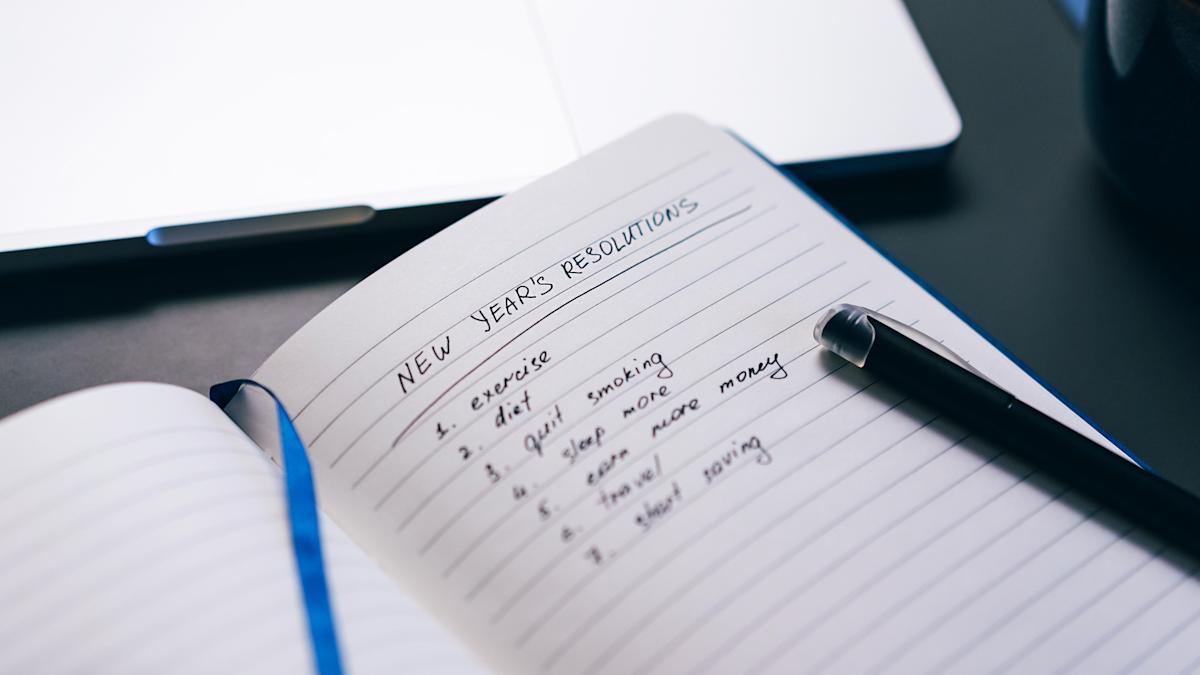 NEW YEAR'S RESOLUTIONS
1. exercise
2. diet
3. quit smoking
4. sleep more
5. earn more money
6. travel
7. start saving